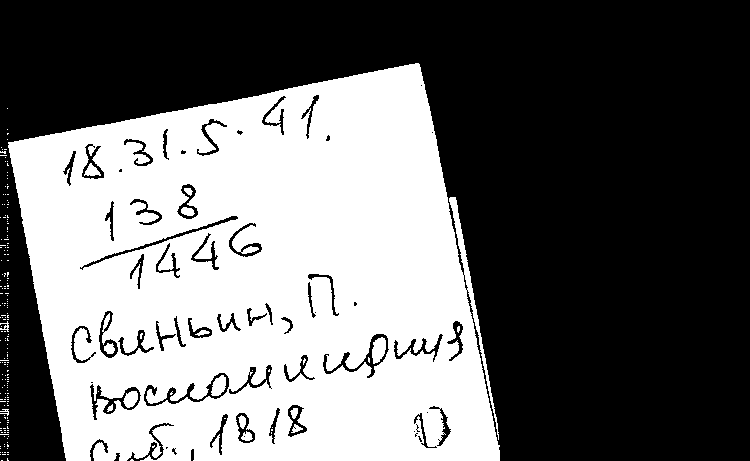 18.31.5.41.
138
1446
Свиньин, П.
Воспоминания
Спб., 1818